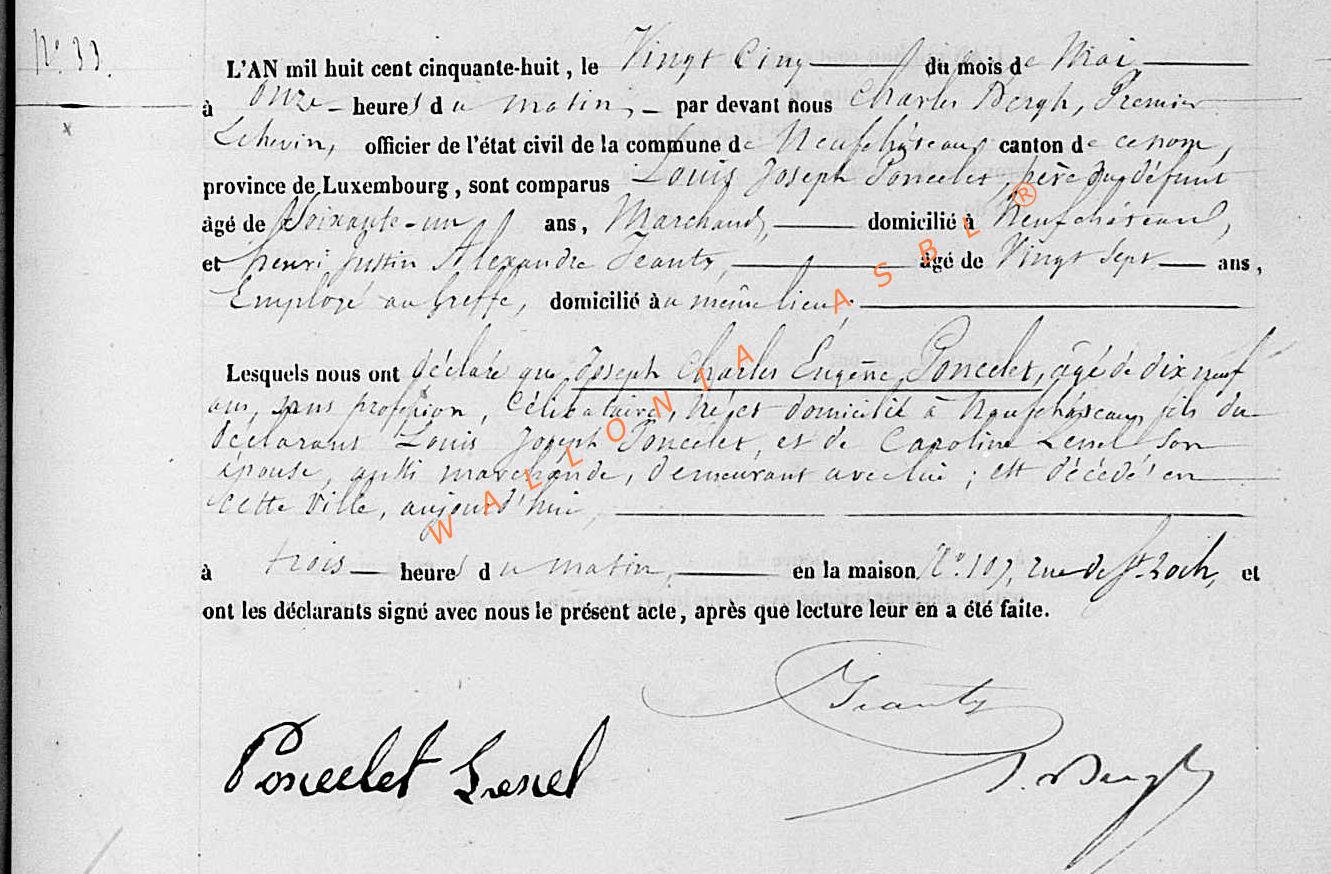 N° 33.
L'AN mil huit cent cinquante-huit, le Vingt Cinq du mois de Mai
à onze heures du matin, par devant nous Charles Bergh, Premier
Echevin, officier de l'état civil de la commune de Neufchâteau canton de ce nom,
province de Luxembourg, sont comparus Louis Joseph Poncelet, père du défunt
âgé de Soixante-un ans, Marchand, domicilié à Neufchâteau,
et henri Justin Alexandre Jeanty, âgé de Vingt Sept ans,
Employé au Greffe, domicilié au même lieu;
Lesquels nous ont déclaré que Joseph Charles Eugène Poncelet, âgé de dix neuf
ans, sans profession, Célibataire, né et domicilié à Neufchâteau, fils du
déclarant Louis Joseph Poncelet, et de Caroline Lenel son
épouse, aussi marchande, demeurant avec lui; est décédé en
cette Ville, aujourd'hui,
à trois heures du matin, en la maison N° 107, rue de St. Roch, et
ont les déclarants signé avec nous le présent acte, après que lecture leur en a été faite.
Jeanty
Poncelet Lenel
Bergh
WALLONIA ASBL ®